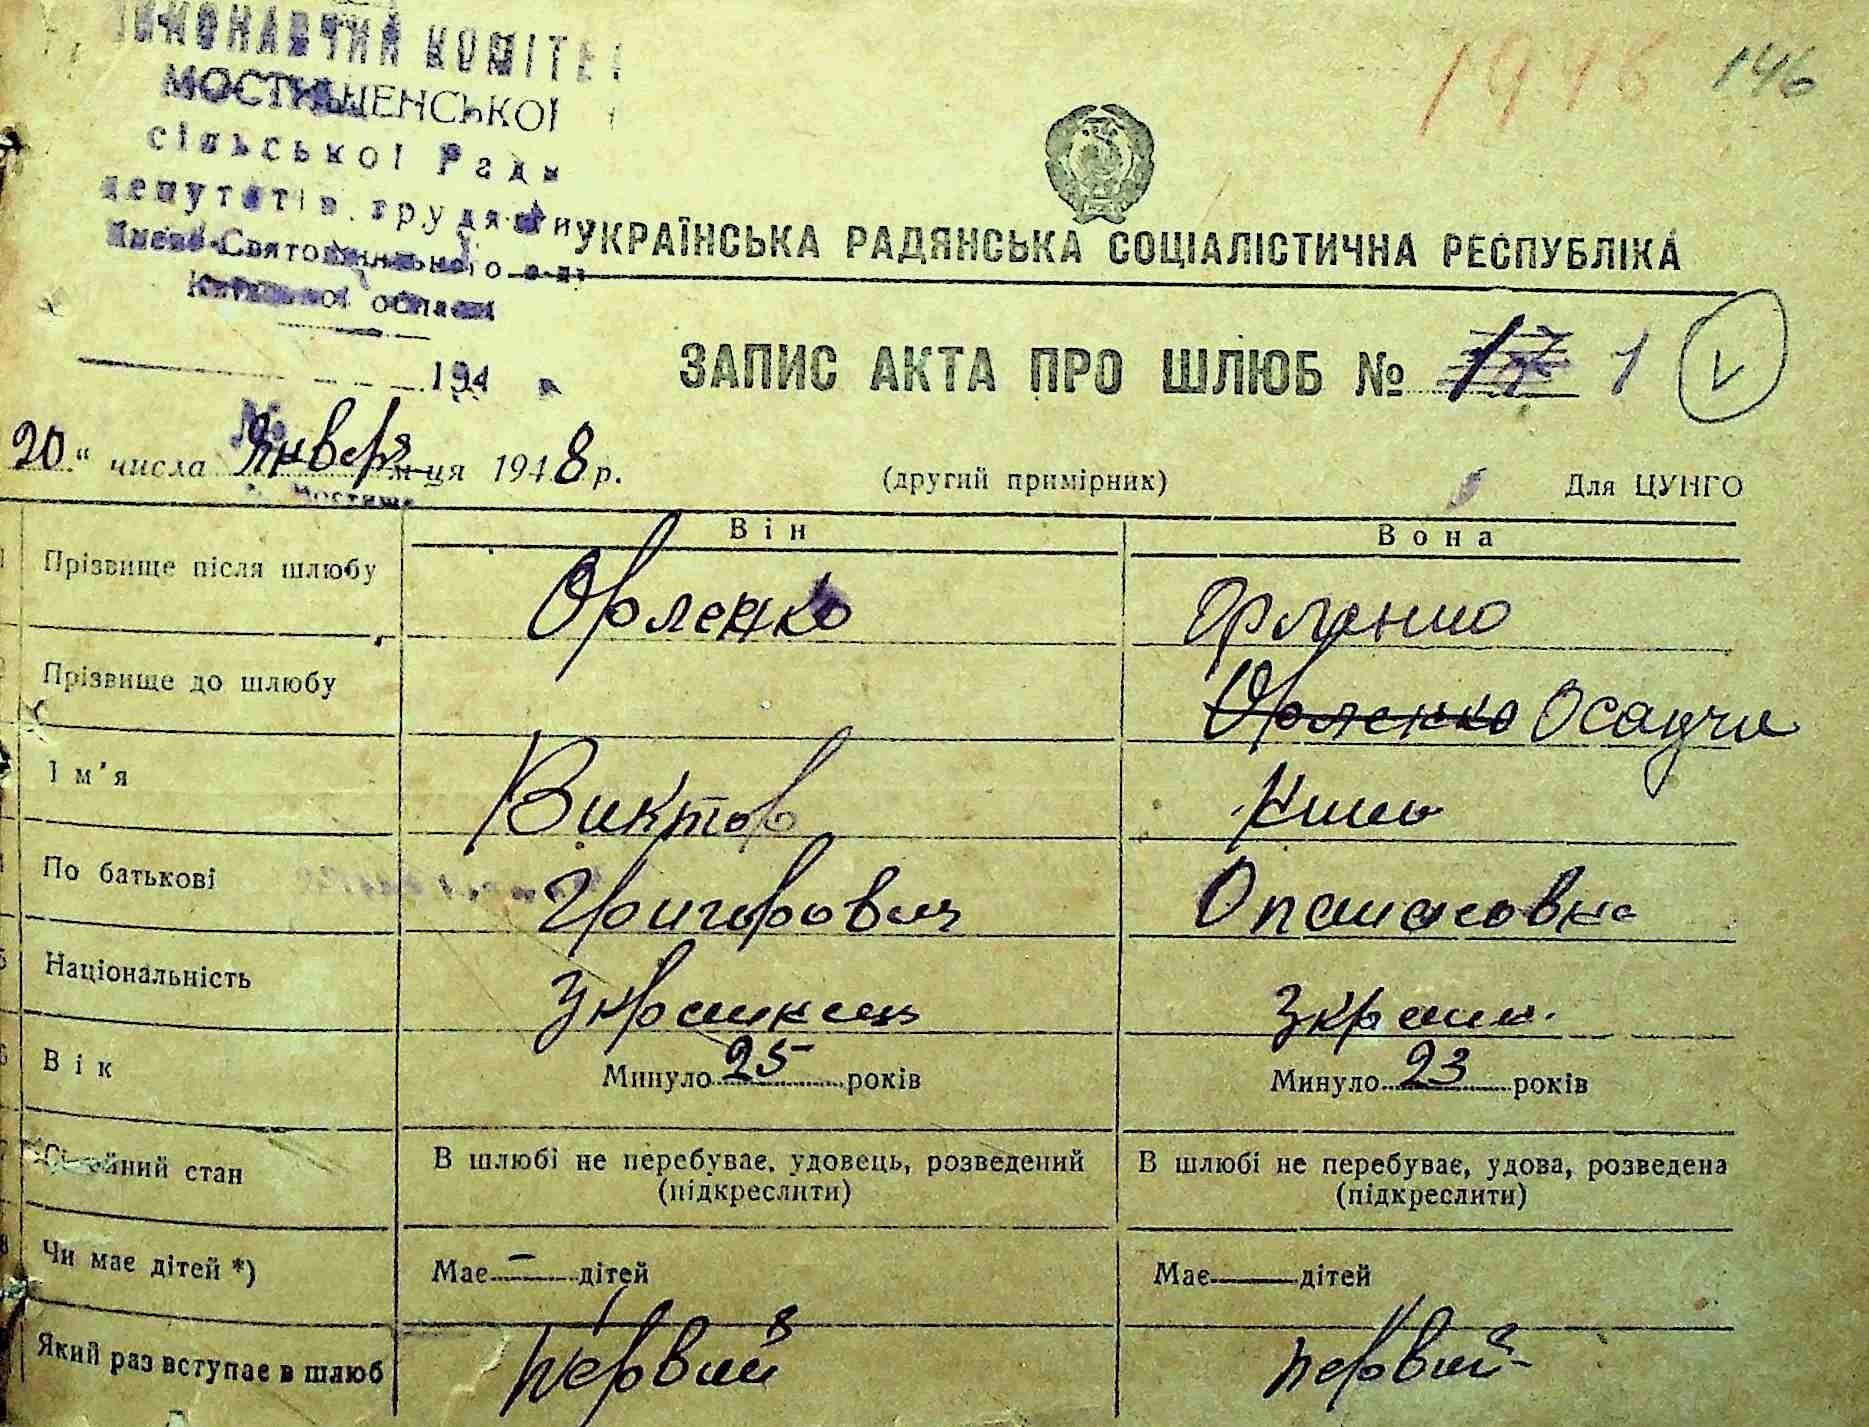 ВИКОНАВЧИЙ КОМІТЕТ
МОСТИЩЕНСЬКОЇ
сільської Ради
депутатів трудящих
Києво-Святошинського р-ну
Київської області
194
№
с. Мостище
1946 146
УКРАЇНСЬКА РАДЯНСЬКА СОЦІАЛІСТИЧНА РЕСПУБЛІКА
ЗАПИС АКТА ПРО ШЛЮБ № 17 1
20 " числа Января м-ця 1948 р.
(другий примірник) Для ЦУНГО
Він Вона
Прізвище після шлюбу Орленко Орленко
Прізвище до шлюбу Орленко
Ім'я Виктор
По батькові Григорович Опанасовна
Національність Украинец Украин.
Вік Минуло 25 років Минуло 23 років
Сімейний стан В шлюбі не перебуває, удовець, розведений (підкреслити) В шлюбі не перебуває, удова, розведена (підкреслити)
Чи має дітей *) Має — дітей Має — дітей
Який раз вступає в шлюб первий первий